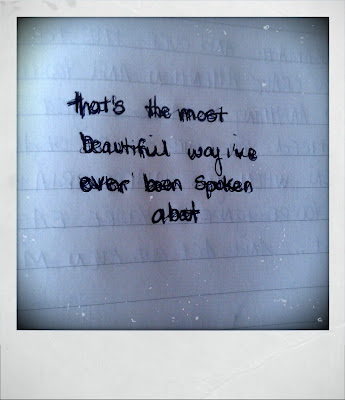 that's the most
beautiful way i've
ever been spoken
about